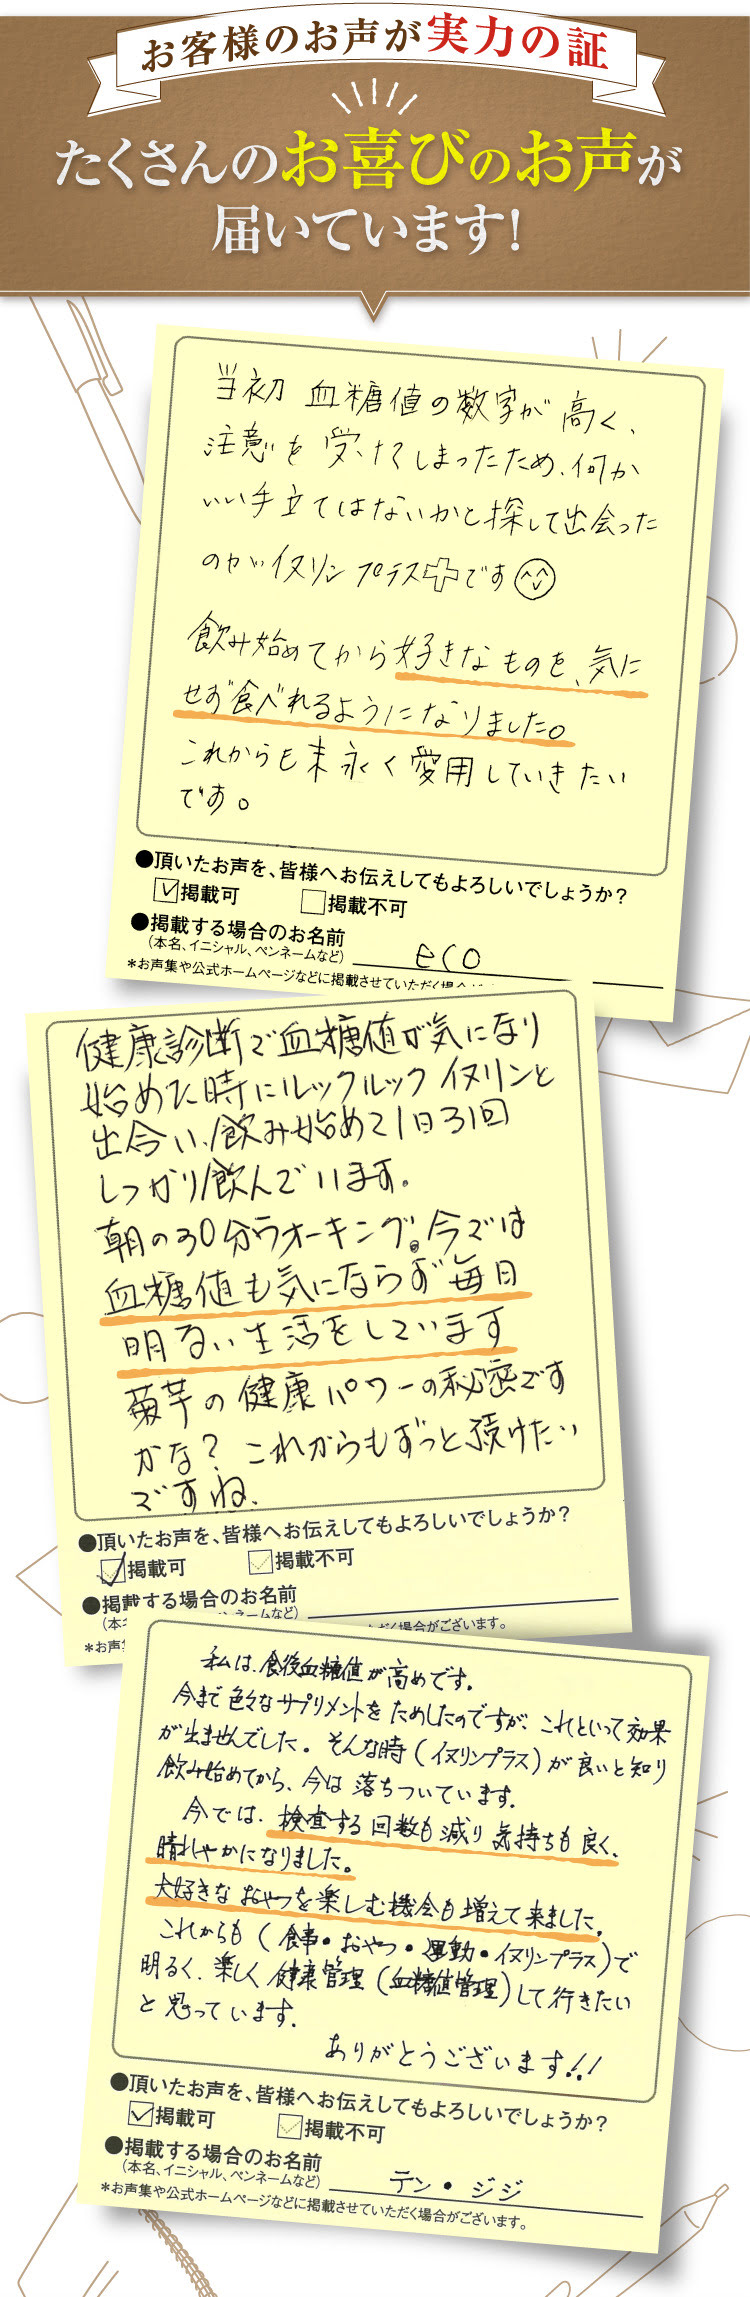 お客様のお声が実力の証
たくさんのお喜びのお声が
届いています!
当初 血糖値の数字が高く、
注意を受けてしまったため、何か
いい手立てはないかと探して出会った
のがイヌリンプラス➕です
飲み始めてから好きなものを、気に
せず食べれるようになりました。
これからも末永く愛用していきたい
です。
●頂いたお声を、皆様へお伝えしてもよろしいでしょうか?
掲載可 掲載不可
●掲載する場合のお名前
(本名、イニシャル、ペンネームなど) eco
*お声集や公式ホームページなどに掲載させていただく場合が
健康診断で血糖値が気になり
始めた時にルックルック イヌリンと
出合い、飲み始めて1日31回
しっかり飲んでいます。
朝の30分ウオーキング。今では
血糖値も気にならず毎日
明るい生活をしています
菊芋の健康パワーの秘密です
かな? これからもずっと、頂けたい
ですね、
●頂いたお声を、皆様へお伝えしてもよろしいでしょうか?
掲載可 掲載不可
●掲載する場合のお名前
ンネームなど)
*お声
だく場合がございます。
私は、食後血糖値が高めです。
今まで色々なサプリメントをためしたのですが、これといって効果
が出ませんでした。そんな時(イヌリンプラス)が良いと知り
飲み始めてから、今は落ちついています。
今では、検査する回数も減り気持ちも良く、
晴れやかになりました。
大好きなおやつを楽しむ機会も増えて来ました。
これからも(食事・おやつ・運動・イヌリンプラス)で
明るく、楽しく健康管理(血糖値管理)して行きたい
と思っています。
ありがとうございます!!
●頂いたお声を、皆様へお伝えしてもよろしいでしょうか?
掲載可 掲載不可
●掲載する場合のお名前
(本名、イニシャル、ペンネームなど) テン・ジジ
*お声集や公式ホームページなどに掲載させていただく場合がございます。